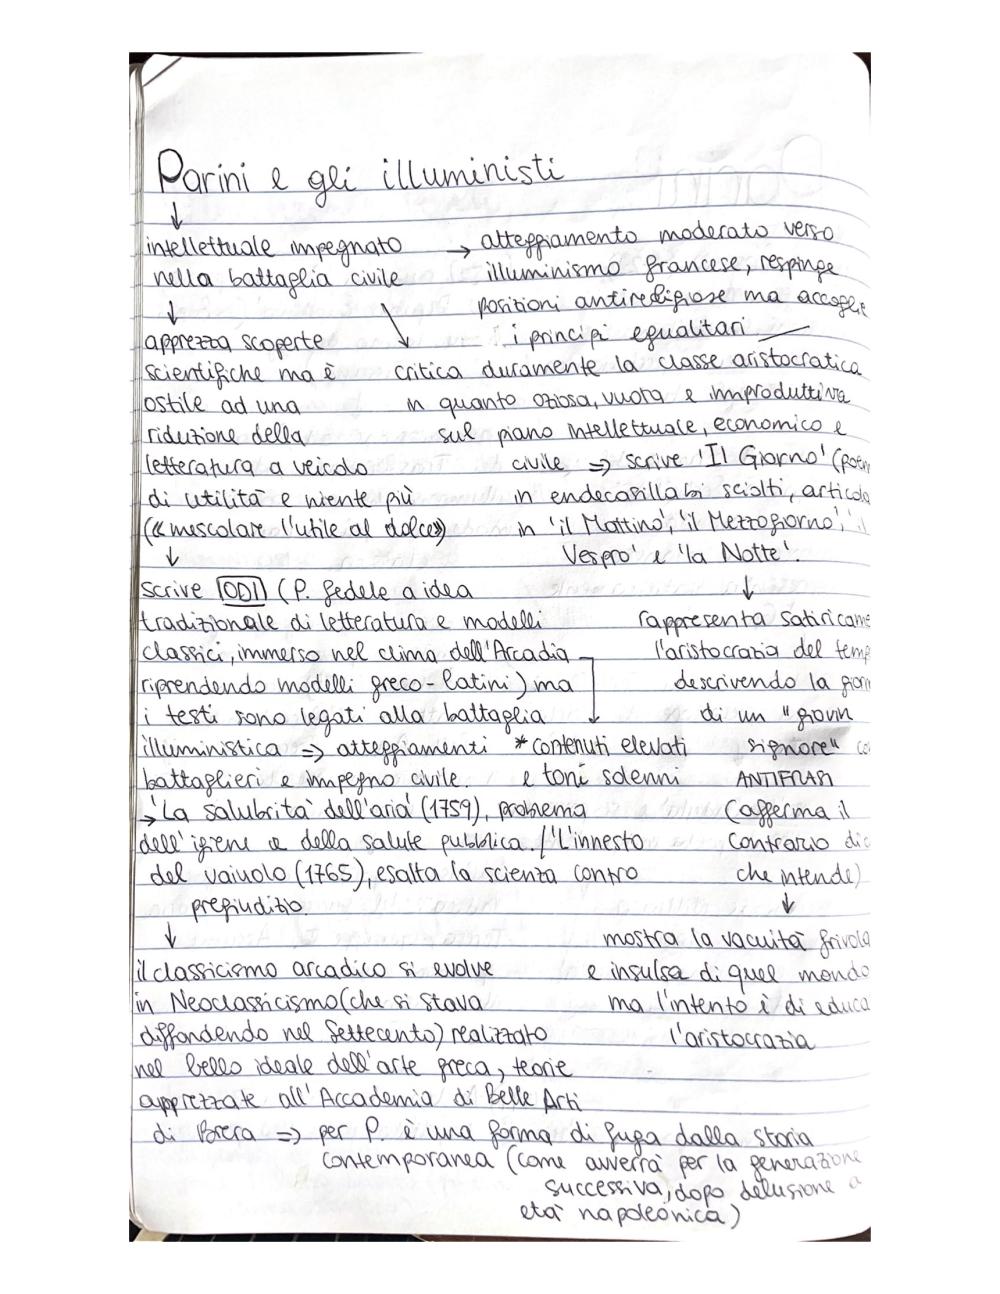 Parini e gli illuministi
↓
intellettuale impegnato
nella battaglia civile
→ atteggiamento moderato verso
illuminismo francese, respinge
posizioni antireligiose ma accoglie
i principi egualitari.
↓
apprezza scoperte
scientifiche ma è
ostile ad una
riduzione della
letteratura a veicolo
di utilità e niente più
(«mescolare l'utile al dolce»)
↓
critica duramente la classe aristocratica
in quanto oziosa, vuota e improduttiva
sul piano intellettuale, economico e
civile => scrive 'Il Giorno' (poem
in endecasillabi sciolti, articola
in 'il Mattino', 'il Mezzogiorno', 'il
Vespro' e 'la Notte'.
↓
scrive ODI (P. fedele a idea
tradizionale di letteratura e modelli
classici, immerso nel clima dell'Arcadia
riprendendo modelli greco-latini) ma
i testi sono legati alla battaglia
illuministica => atteggiamenti
battaglieri e impegno civile.
* contenuti elevati
e toni solenni
→ 'La salubrità dell'aria' (1759), problema
dell'igiene e della salute pubblica. / 'L'innesto
del vaiuolo (1765), esalta la scienza contro
pregiudizio.
↓
rappresenta satiricame
l'aristocrazia del temp
descrivendo la gior
di un "giovin
signore" co
ANTIFRASI
(afferma il
contrario di c
che intende)
↓
mostra la vacuità frivola
e insulsa di quel mondo
ma l'intento è di educa
l'aristocrazia
il classicismo arcadico si evolve
in Neoclassicismo (che si stava
diffondendo nel Settecento) realizzato
nel bello ideale dell'arte greca, teorie
apprezzate all'Accademia di Belle Arti
di Brera => per P. è una forma di fuga dalla storia
contemporanea (come avverrà per la generazione
successiva, dopo delusione a
età napoleonica)